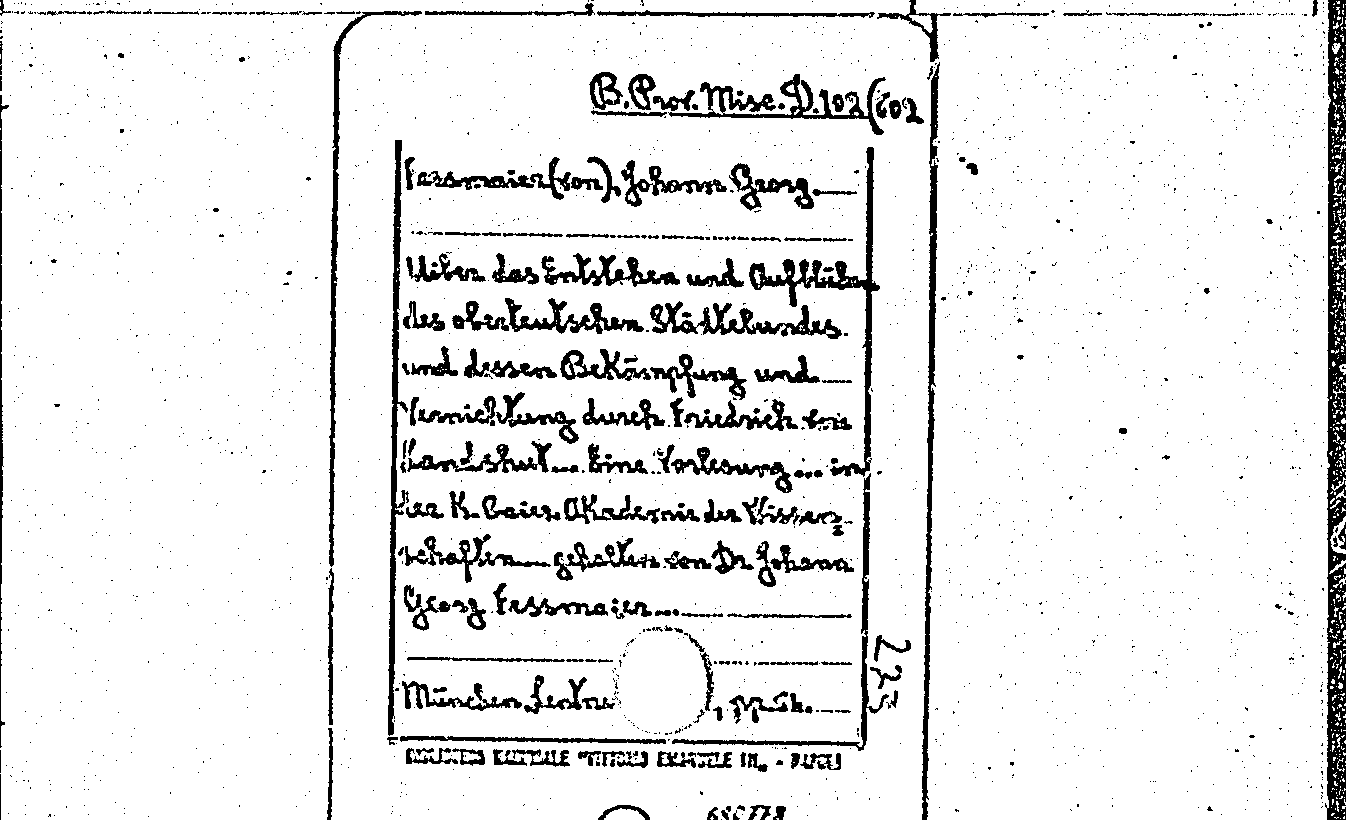 B. Prov. Misc. D. 102 (602
Fessmaier (von), Johann Georg.
Uiber das Entstehen und Aufblühen
des oberteutschen Städtebundes
und dessen Bekämpfung und
Vernichtung durch Friedrich von
Landshut... Eine Vorlesung... in
der K. Baier. Akademie der Wissen-
schaften... gehalten von Dr Johann
Georg Fessmaier...
München, Lentne
BIBLIOTECA NAZIONALE "VITTORIO EMANUELE III„ - NAPOLI